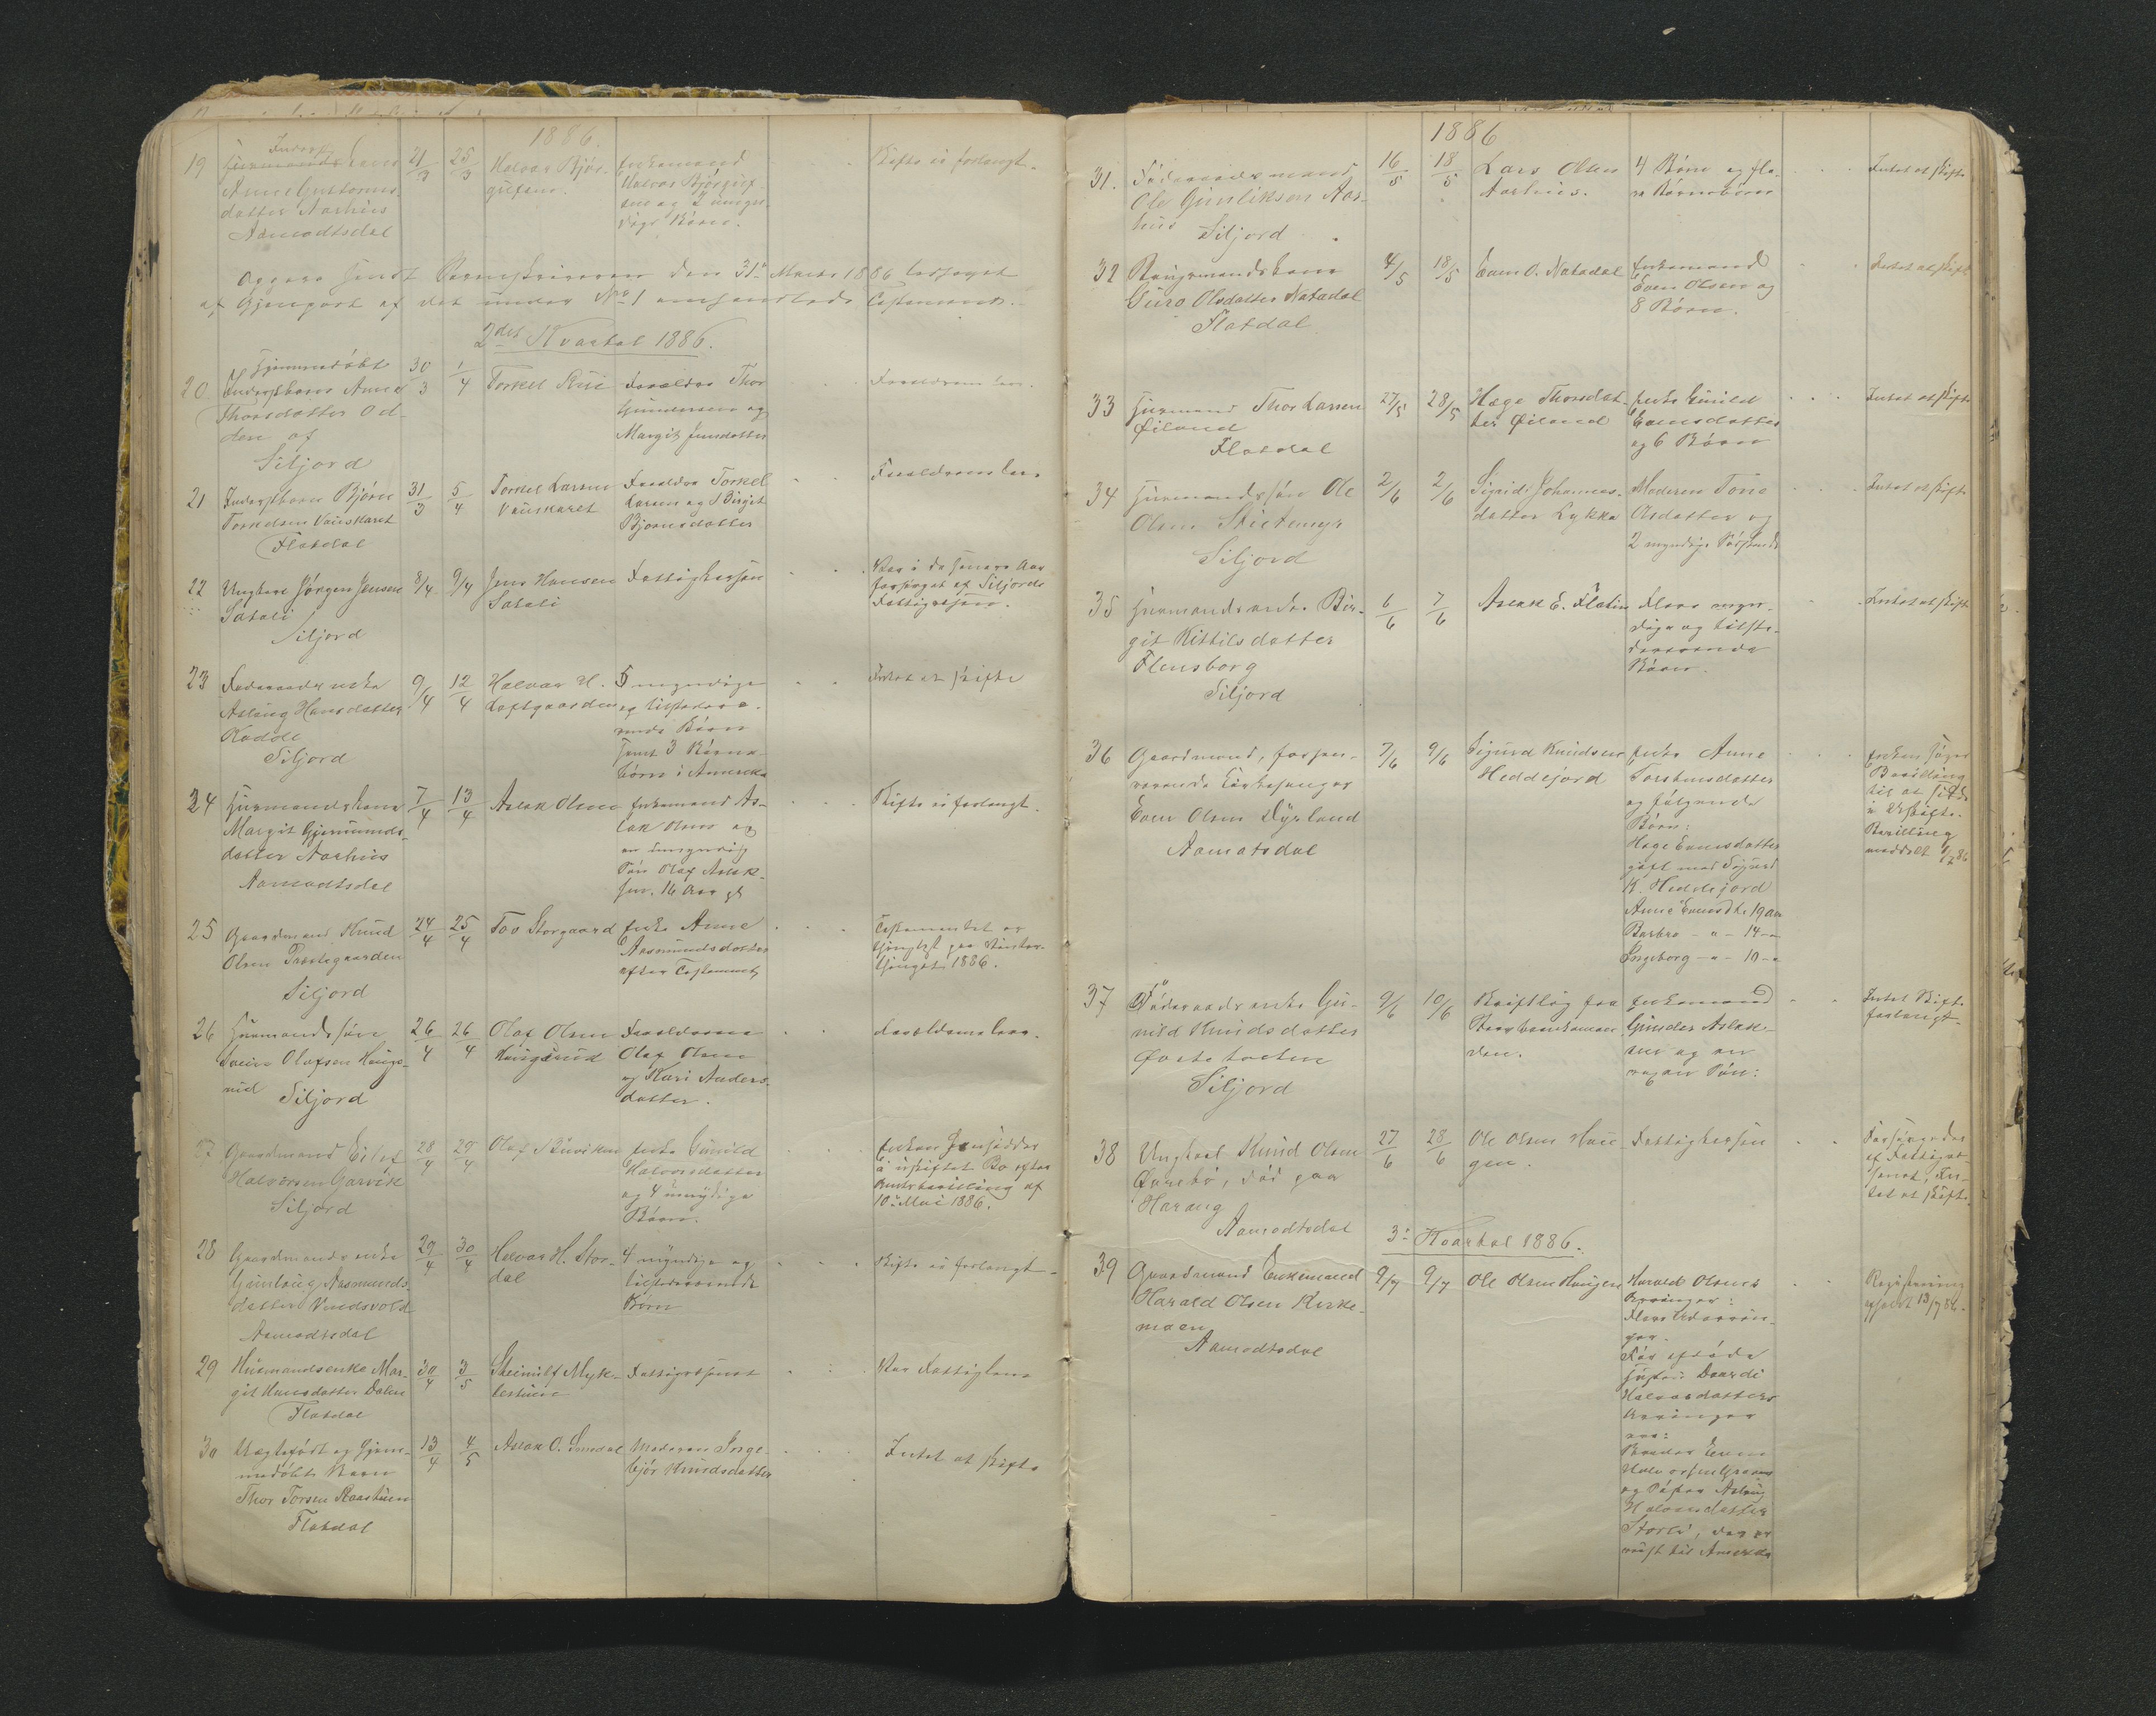 1886.
19 Inderst
Husmandskone
Anne Guttorms-
datter Aarhus
Aamodtsdal
21/3 25/3
Halvor Bjør-
gufsen.
Enkemand
Halvor Bjørguf-
sen og 2 umyn-
dige Børn.
Skifte ei forlangt.
Opgave sendt Sorenskriveren den 31te Marts 1886 ledsaget
af Gjenpart af det under No 1 omhandlede Testamente.
2det Kvartal 1886.
20 Hjemmedøbt
Inderstbarn Anne
Thorsdatter Od-
den af
Siljord
30/3 1/4
Torkel Lui
Forældre Thor
Gundersen og
Margit Jensdatter
Forældrene lever.
21 Inderstbarn Bjørn
Torkelsen Vauskaret
Flatdal
31/3 5/4
Torkel Larsen
Vauskaret
Forældre Torkel
Larsen og Birgit
Bjørnsdatter
Forældrene lever
22 Ungkarl Jørgen Jensen
Satali
Siljord
8/4 9/4
Jens Hansen
Satali
Fattigkassen
Var i de senere Aar
forsørget af Siljords
Fattigvæsen.
23 Føderaadsenke
Aslaug Hansdatter
Kodde
Siljord
9/4 12/4
Halvor H.
Loftgaarden
5 myndige
og tilstedevæ-
rende Børn
samt 3 Børne-
børn i Amerika
Intet at skifte
24 Husmandskone
Margit Gjermunds-
datter Aarhus
Aamodtsdal
7/4 13/4
Aslak Olsen
Enkemand As-
lak Olsen og
en umyndig
Søn Olaf Aslak-
sen. 16 Aar gl
Skifte ei forlangt.
25 Gaardmand Knud
Olsen Prestegaarden
Siljord
24/4 25/4
Tov Storgaard
Enke Anne
Aasmundsdatter
efter Testament
Testamentet er
thinglyst paa Vinter-
thinget 1886.
26 Husmandssøn
Svein Olafsen Hauge-
rud Siljord
26/4 26/4
Olaf Olsen
Haugerud
Forældrene
Olaf Olsen
og Kari Anders-
datter.
Forældrene lever.
27 Gaardmand Eilef
Halvorsen Garvik
Siljord
28/4 29/4
Olaf Sundviken
Enke Gunild
Halvorsdatter
og 4 umyndige
Børn.
Enken hensidder
i uskiftet Bo efter
Amtsbevilling af
10de Mai 1886.
28 Gaardmandsenke
Gunlaug Aasmunds-
datter Vindsvold
Aamodtsdal
29/4 30/4
Halvor H. Stor-
dal
4 myndige og
tilstedeværende
Børn
Skifte ei forlangt.
29 Husmandsenke Mar-
git Hansdatter Dalen
Flatdal
30/4 3/5
Steinulf Myk-
lestuen
Fattigvæsenet
Var Fattiglem
30 Uægtefødt og hjem-
medøbt Barn
Thor Torsen Kaastuen
Flatdal
13/4 4/5
Aslak O. Sundal
Moderen Inge-
bjør Knudsdatter
Intet at skifte
1886
31. Føderaadsmand
Ole Gunleiksen Aar-
hus
Siljord
16/5 18/5
Lars Olsen
Aarhus.
4 Børn og fle-
re Børnebørn
Intet at skifte
32 Brugsmandskone
Guro Olsdatter Natadal
Flatdal
4/5 18/5
Even O. Natadal
Enkemand
Even Olsen og
8 Børn.
Intet at skifte
33 Husmand Thor Larsen
Øiland
Flatdal
27/5 28/5
Hæge Thorsdat-
ter Øiland
Enke Gunild
Evensdatter
og 6 Børn
Intet at skifte
34 Husmandssøn Ole
Olsen Skistemyr
Siljord
2/6 2/6
Sigrid Johannes-
datter Lykka
Moderen Tone
Olsdatter og
2 myndige Søskende
Intet at skifte
35 Husmandsenke Bir-
git Kittilsdatter
Flensborg
Siljord
6/6 7/6
Aslak E. Flatin
Flere myn-
dige og tilste-
deværende
Børn.
Intet at skifte
36 Gaardmand, forhen-
værende Kirkesanger
Even Olsen Dyrland
Aamotsdal
7/6 9/6
Sigurd Knudsen
Heddejord
Enke Anne
Torstensdatter
og følgende
Børn:
Hæge Evensdatter
gift med Sigurd
K. Heddejord
Anne Evensdtr. 19 Aar
Barbro - " - 14 - "
Ingeborg - " - 10 - "
Enken søger
Bevilling
til at sidde
i Uskifte.
Bevilling
meddelt 1/7 86
37 Føderaadsenke Gu-
nild Knudsdatter
Øverbøtten
Siljord
9/6 10/6
Skriftlig fra
Enkemand
Gunder Aslak-
sen og en
voxen Søn:
Intet Skifte
forlangt.
38 Ungkarl Knud Olsen
Øverbø, død paa
Haraug
Aamodtsdal
27/6 28/6
Ole Olsen Hau-
gen.
Fattigkassen
Forsørgedes
af Fattigvæ-
senet, In-
tet at skifte.
3die Kvartal 1886.
39 Gaardmand Enkemand
Harald Olsen Kirke-
moen
Aamodtsdal
9/7 9/7
Ole Olsen Haugen
Harald Olsens
Arvinger:
Flere Udarvin-
ger.
Før afdøde
Hustru Daardi
Halvorsdatters
Arvinger
ere:
Broder Even
og Søster Aslaug
Halvorsdatter
Storli, der er
reist til Amerika
Registrering
afholdt 13/7 86.